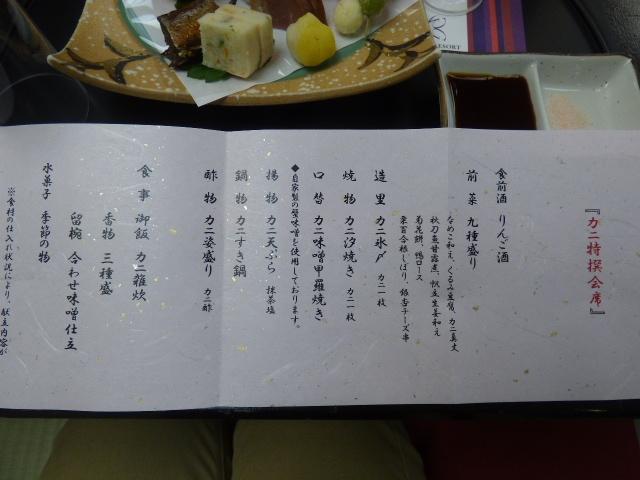 『カニ特撰会席』
食前酒 りんご酒
前菜 九種盛り
なめこ和え、くるみ豆腐、カニ真丈
秋刀魚甘露煮、帆立生姜和え
菊花餅、鴨ロース
栗百合根しぼり、銀杏チーズ串
造里 カニ氷〆 カニ一枚
焼物 カニ汐焼き カニ一枚
口替 カニ味噌甲羅焼き
◆自家製の蟹味噌を使用しております。
揚物 カニ天ぷら 抹茶塩
鍋物 カニすき鍋
酢物 カニ姿盛り カニ酢
食事 御飯 カニ雑炊
香物 三種盛
留椀 合わせ味噌仕立
水菓子 季節の物
※食材の仕入れ状況により、献立内容が
RESORT